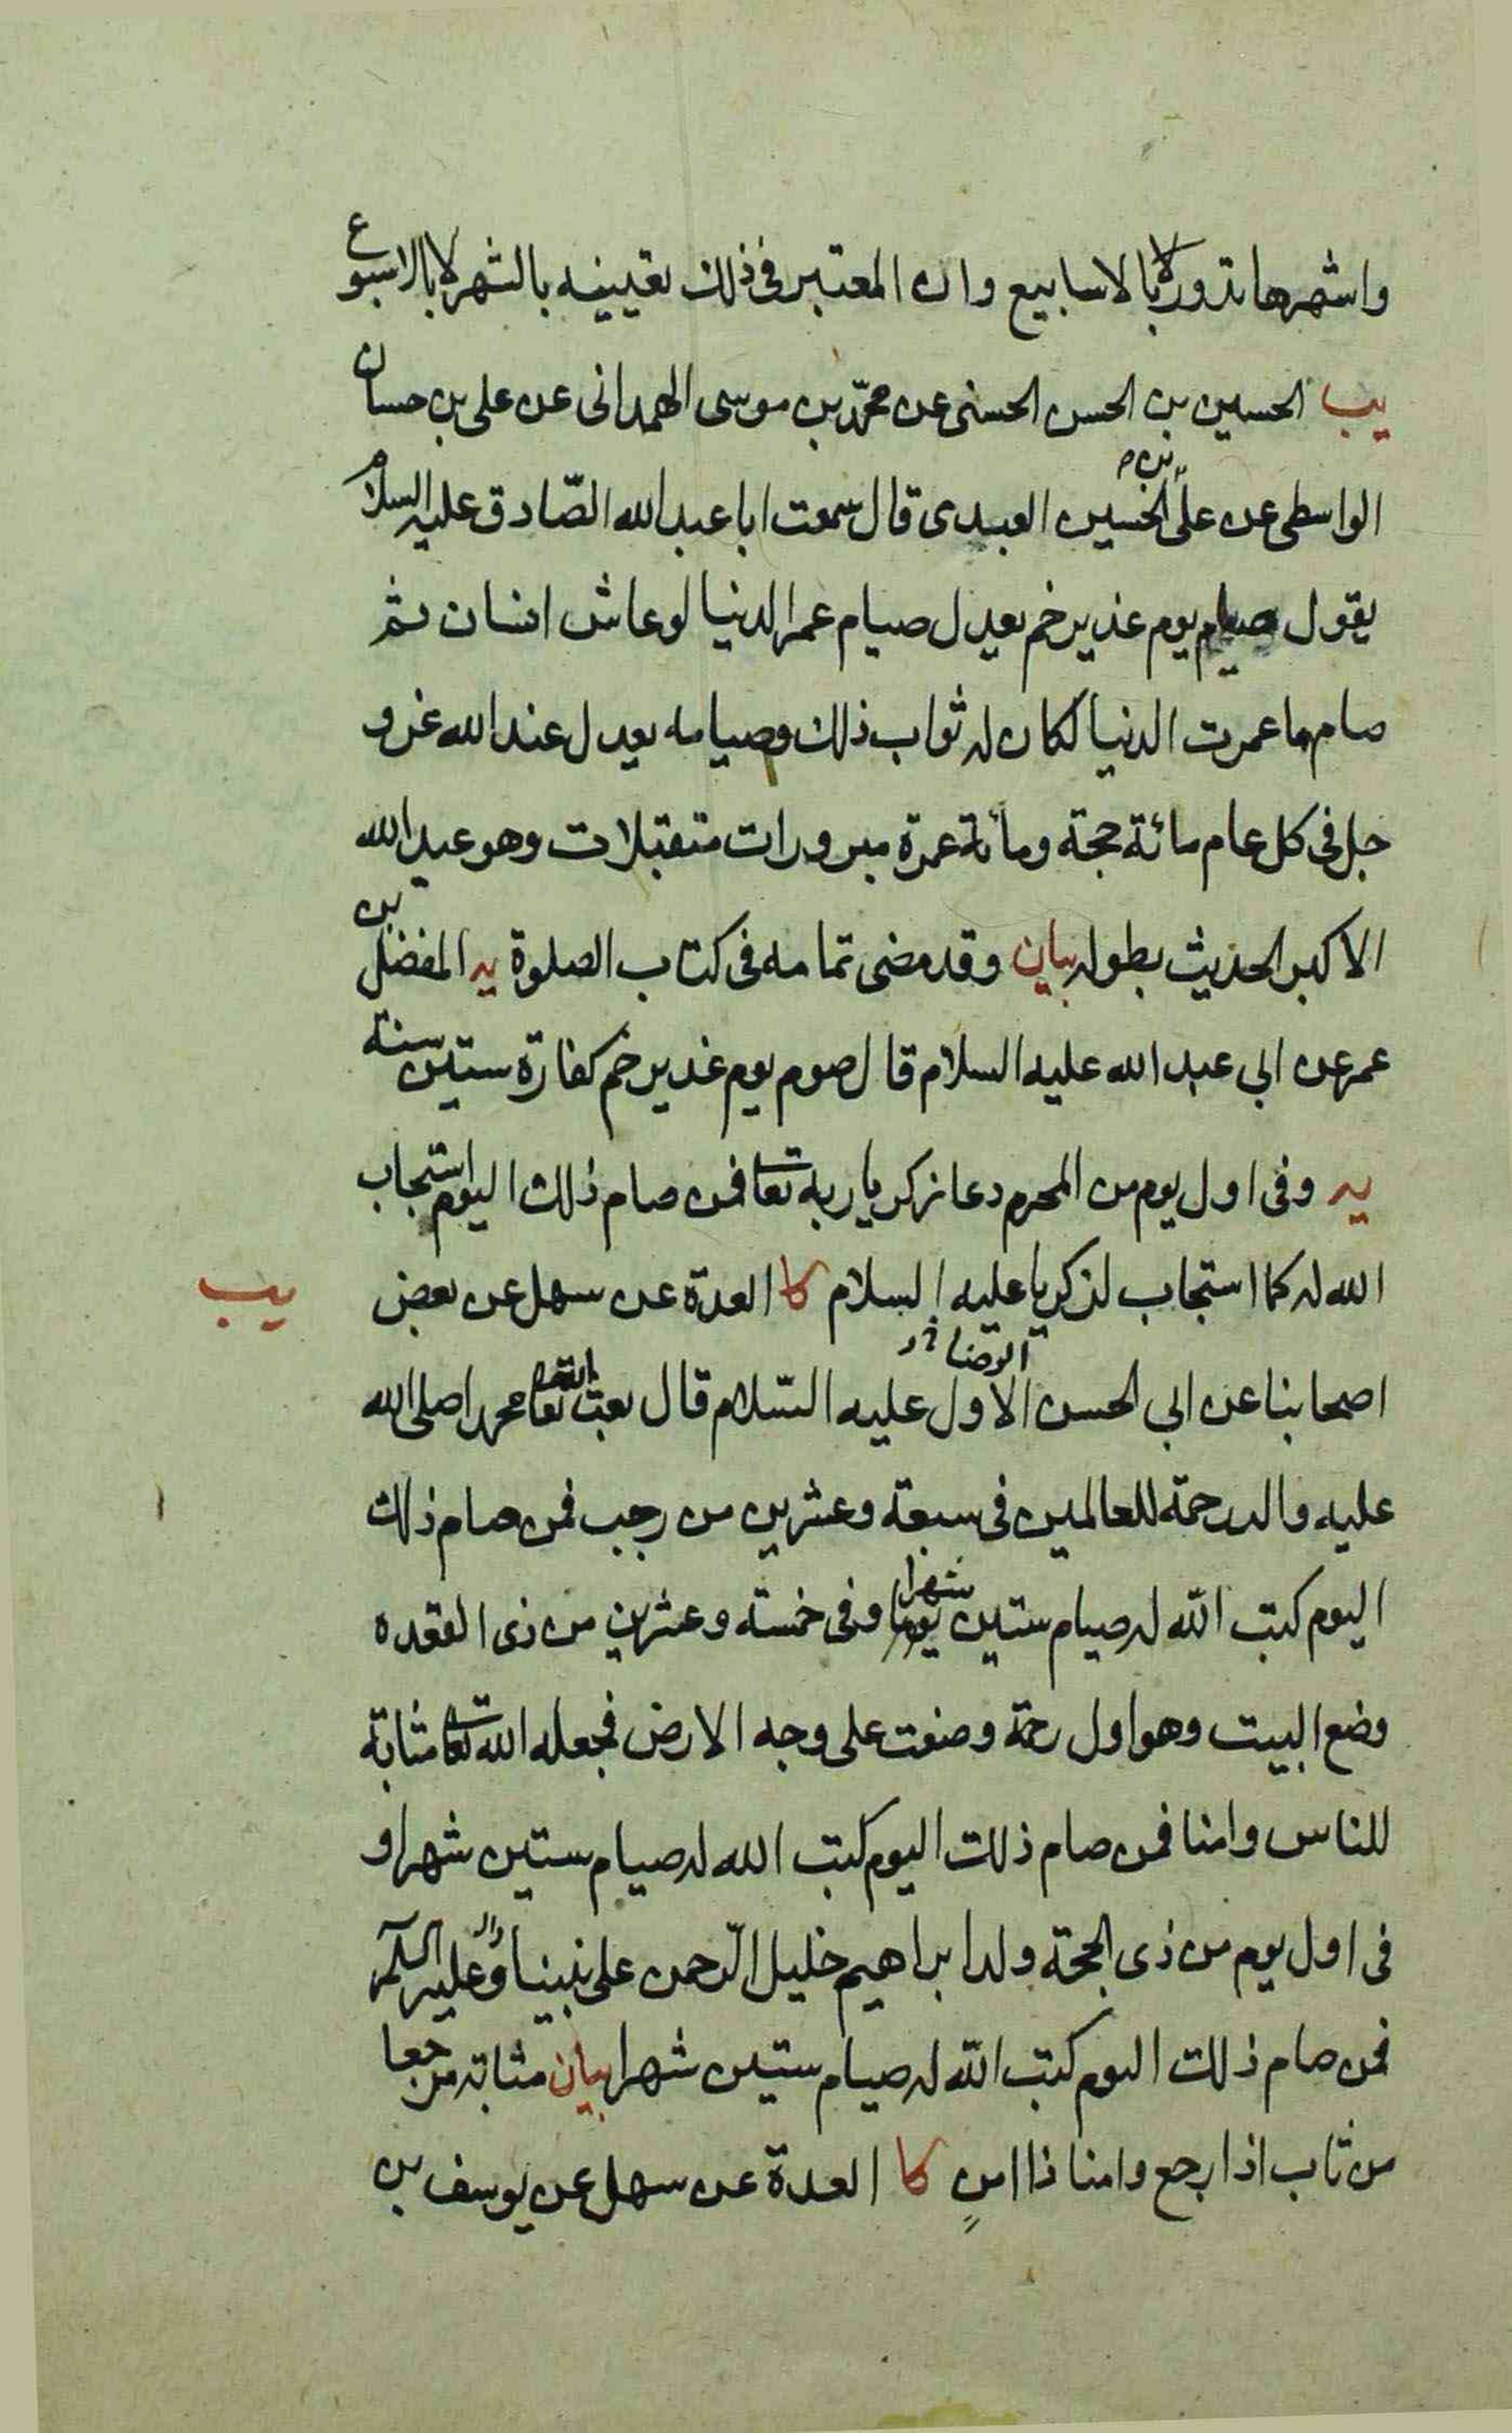 واشهرها تدور لا بالاسابيع وان المعتبر فى ذلك تعيينه بالشهر لا بالاسبوع
يب الحسين بن الحسن الحسنى عن محمّد بن موسى الهمدانى عن على بن حسان
الواسطى عن علىّ بن الحسين العبدى قال سمعت ابا عبد الله الصّادق عليه السلام
يقول صيام يوم غدير خم يعدل صيام عمر الدنيا لو عاش انسان ثم
صام ما عمرت الدنيا لكان له ثواب ذلك وصيامه يعدل عند الله عز و
جل فى كل عام مائة حجة ومائة عمرة مبرورات متقبلات وهو عيد الله
الاكبر الحديث بطوله بيان وقد مضى تمامه فى كتاب الصلوة يه المفضل بن
عمر عن ابي عبد الله عليه السلام قال صوم يوم غدير خم كفارة ستين سنة
يه وفى اول يوم من المحرم دعا زكريا ربه تعا فمن صام ذلك اليوم استجاب
الله له كما استجاب لزكريا عليه السلام كا العدة عن سهل عن بعض
يب
اصحابنا عن ابي الحسن الاول عليه السّلام قال بعث الله تعا محمدا صلى الله
الرضا
عليه واله رحمة للعالمين فى سبعة وعشرين من رجب فمن صام ذلك
اليوم كتب الله له صيام ستين يوما شهرا وفى خمسة وعشرين من ذى القعده
وضع البيت وهو اول رحمة وضعت على وجه الارض فجعله الله تعا مثابة
للناس وامنا فمن صام ذلك اليوم كتب الله له صيام ستين شهرا و
فى اول يوم من ذى الحجة ولد ابراهيم خليل الرّحمن على نبينا واله وعليه السلم
فمن صام ذلك اليوم كتب الله له صيام ستين شهرا بيان مثابة مرجعا
من ثاب اذا رجع وامنا ذا امنٍ كا العدة عن سهل عن يوسف بن